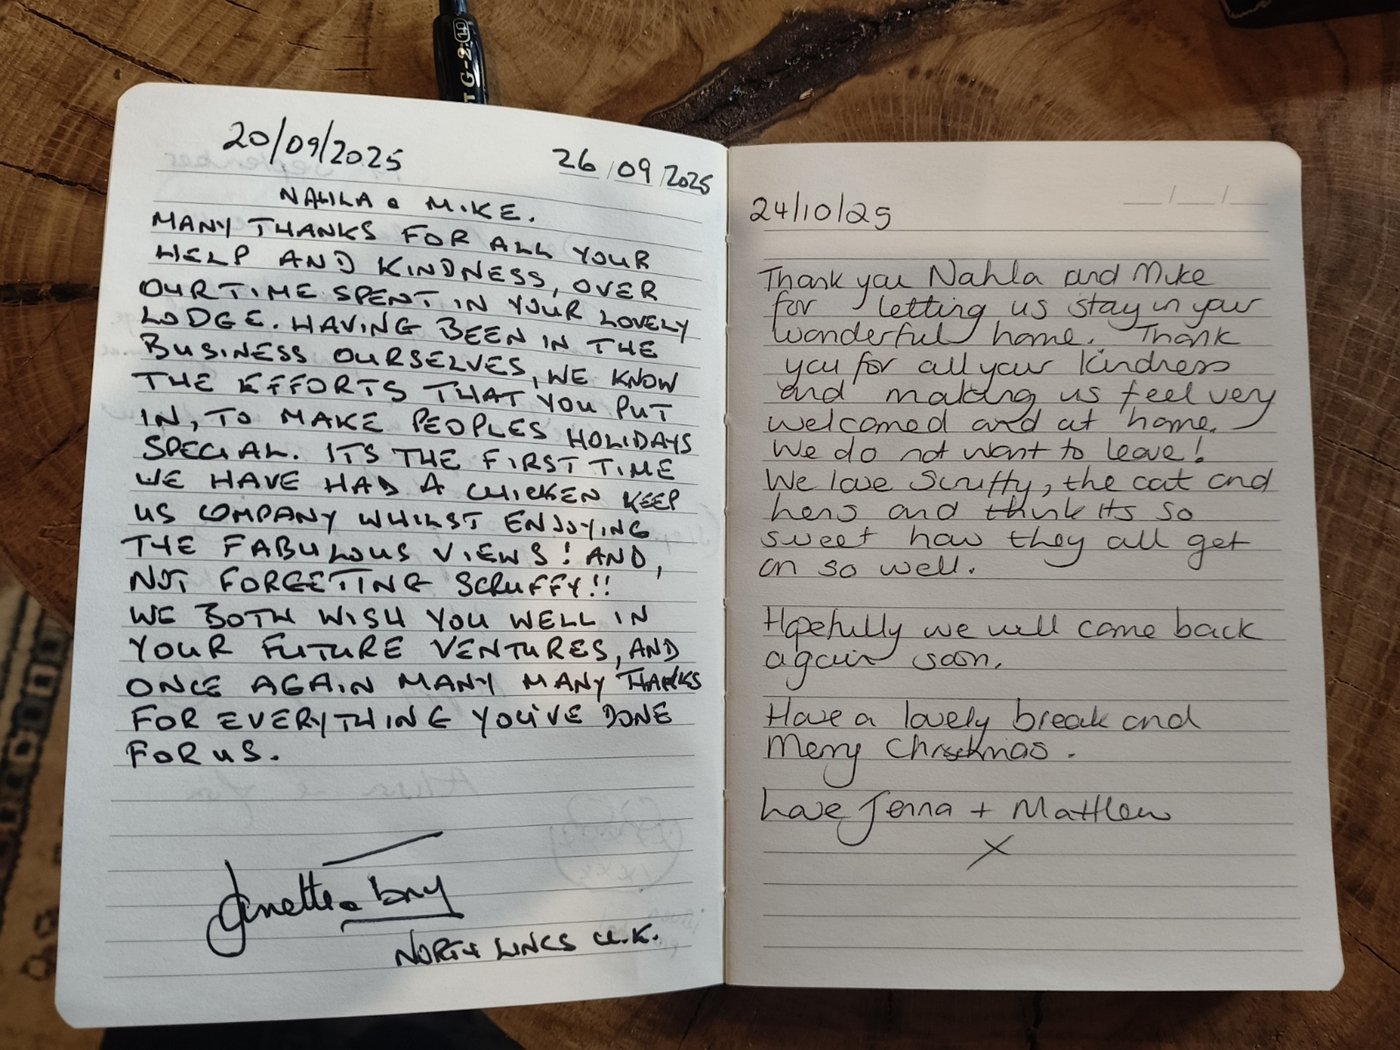 TG-2
20/09/2025
26/09/2025
NAHLA & MIKE.
MANY THANKS FOR ALL YOUR
HELP AND KINDNESS, OVER
OUR TIME SPENT IN YOUR LOVELY
LODGE. HAVING BEEN IN THE
BUSINESS OURSELVES, WE KNOW
THE EFFORTS THAT YOU PUT
IN, TO MAKE PEOPLES HOLIDAYS
SPECIAL. ITS THE FIRST TIME
WE HAVE HAD A CHICKEN KEEP
US COMPANY WHILST ENJOYING
THE FABULOUS VIEWS! AND,
NOT FORGETTING SCRUFFY!!
WE BOTH WISH YOU WELL IN
YOUR FUTURE VENTURES, AND
ONCE AGAIN MANY MANY THANKS
FOR EVERYTHING YOU'VE DONE
FOR US.
NORTH LINCS U.K.
24/10/25
Thank you Nahla and Mike
for letting us stay in your
wonderful home. Thank
you for all your kindness
and making us feel very
welcomed and at home.
We do not want to leave!
We love Scruffy, the cat and
hens and think its so
sweet how they all get
on so well.
Hopefully we will come back
again soon.
Have a lovely break and
Merry Christmas.
Love Jenna + Matthew
X